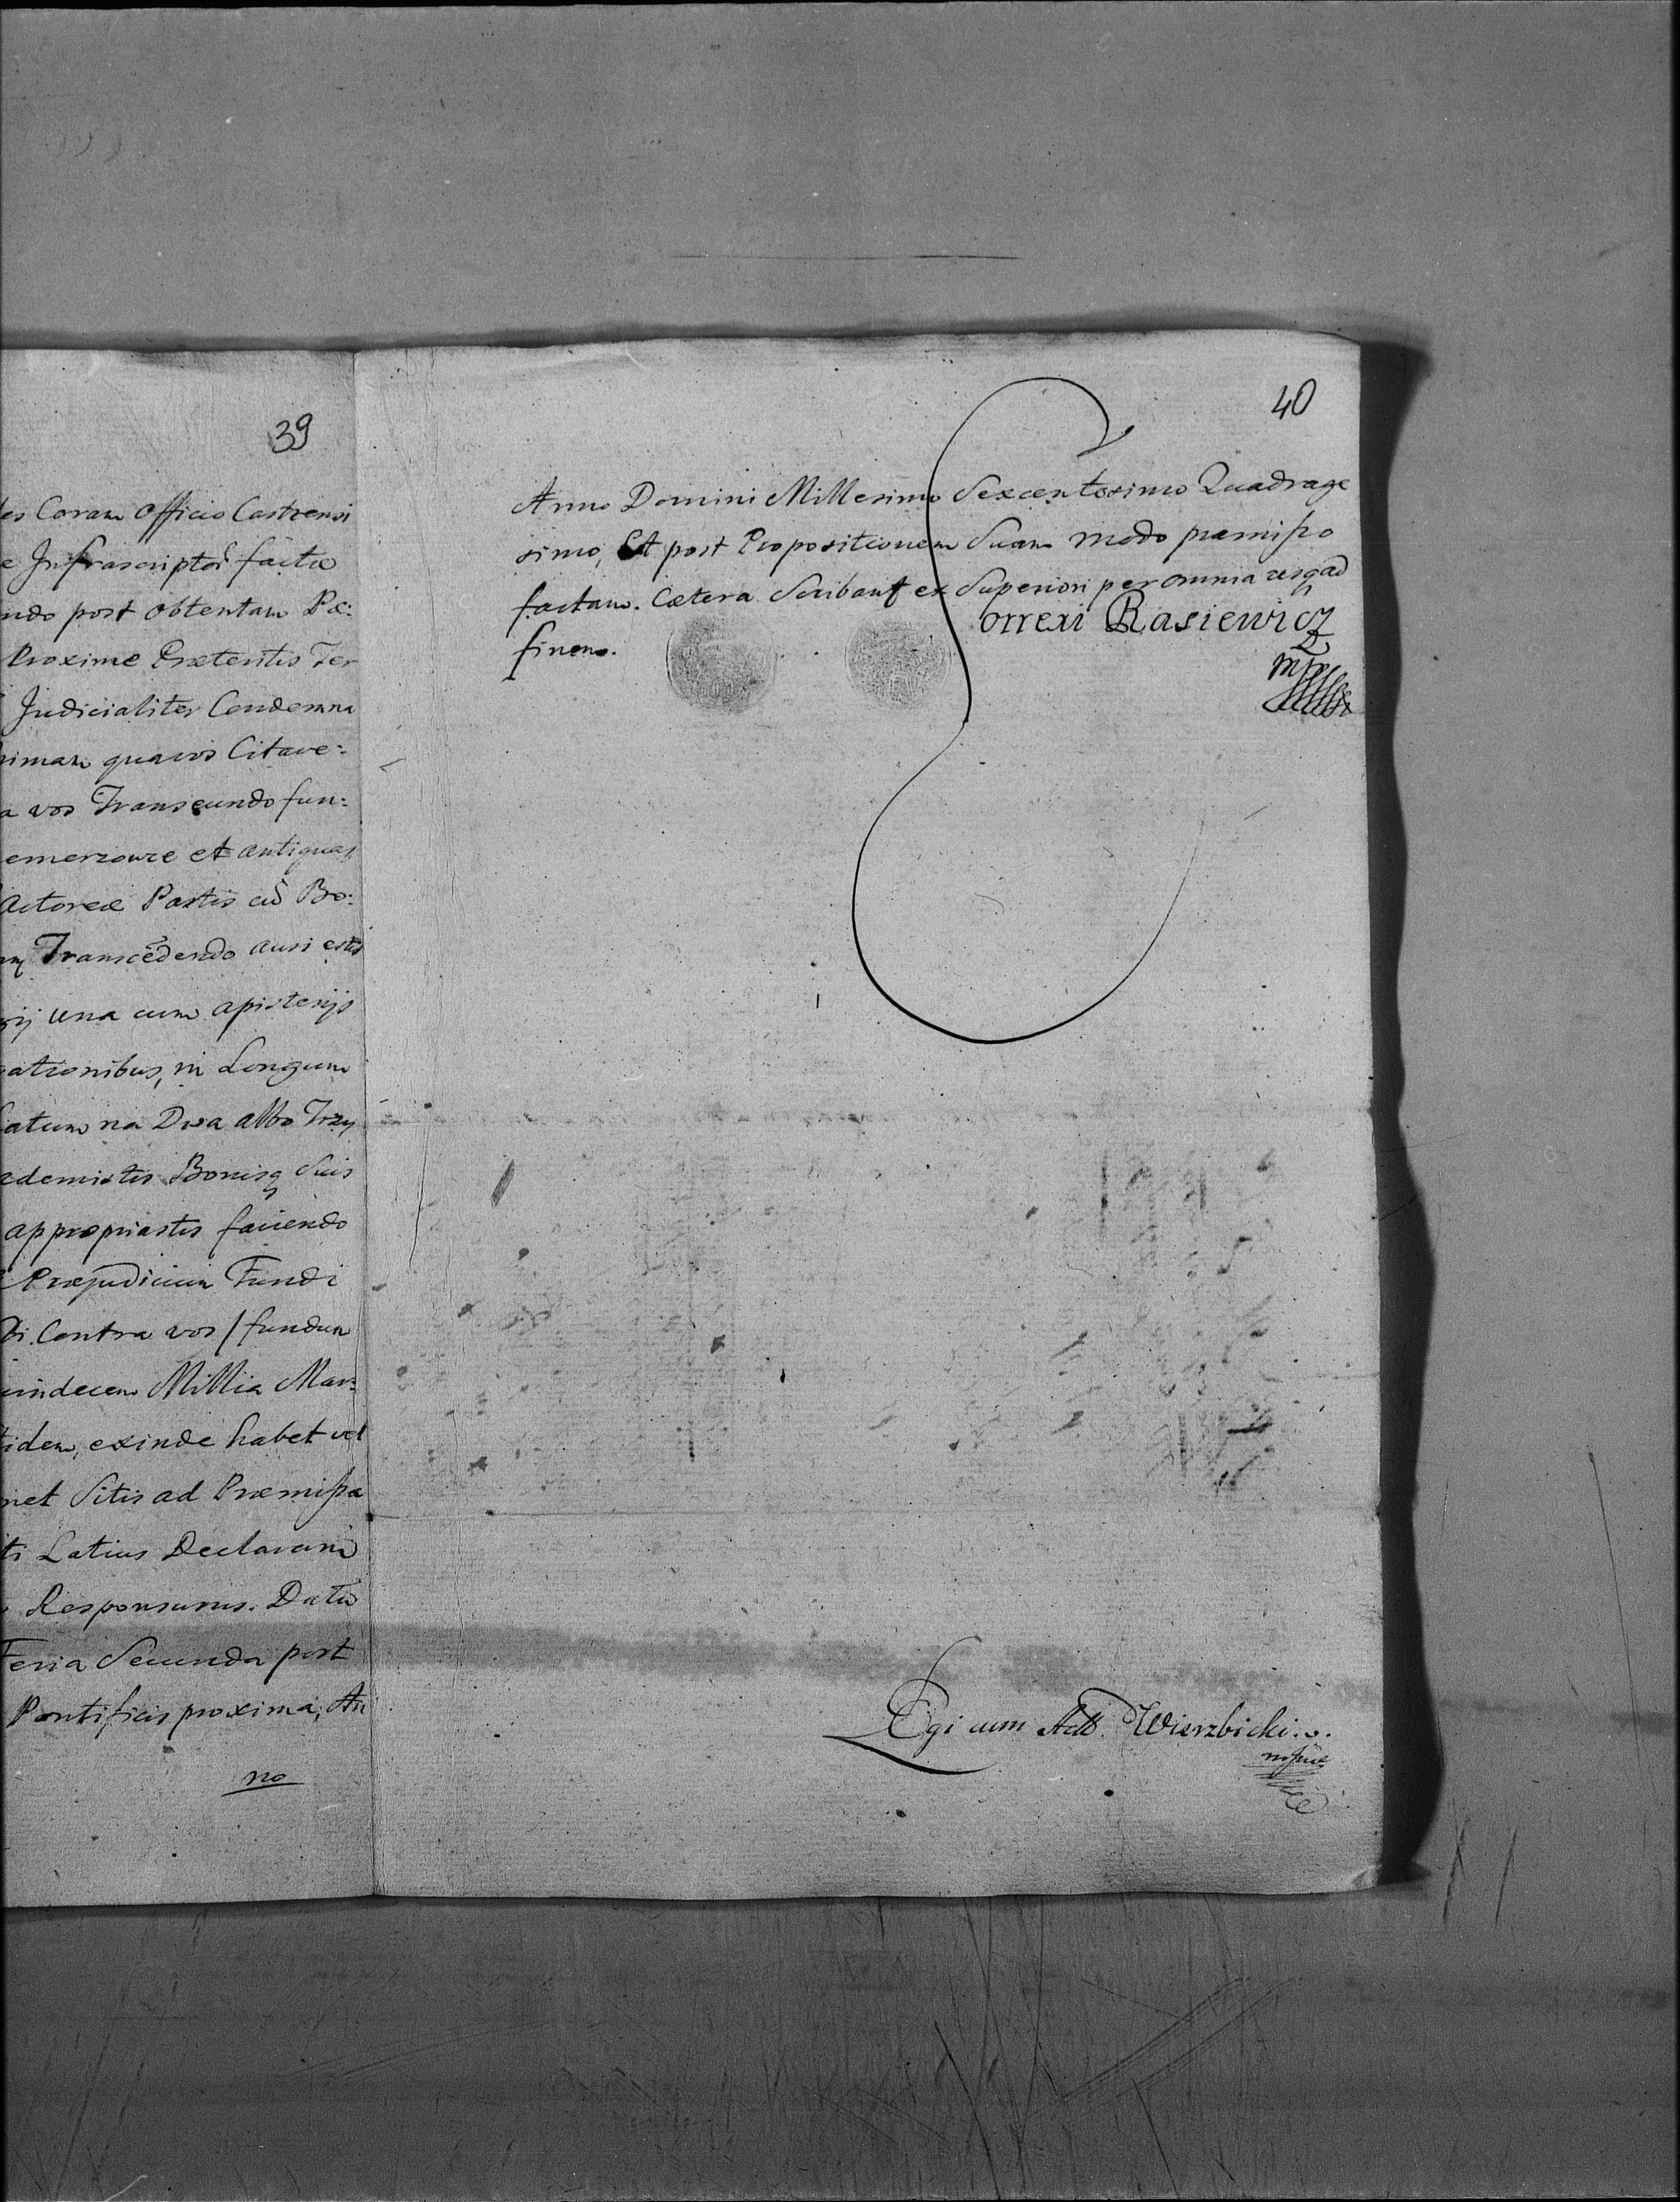 39
es Coram Officio Castrensi
e Infrascriptor factæ
ndo post obtentam Pæ:
Proxime Præteritis Ter
Judicialiter Condemna
imam quavis Citave:
a vos Transeundo fun:
et antiquas
Actoreæ Partis ad Bo:
Transcedendo ausi estis
rij una cum
ationibus, in Longum
latum na Dwa albo Trzy
ademistis Bonisq Suis
appropriastis faciendo
Præjudicium Fundi
di. Contra vos / fundum
uindecem Millia Mar:
tidem, exinde habet vel
net Sitis ad Præmissa
ti Latius Declarani
Responsurus. Datu
Feria Secunda post
Pontificis proxima, An
no
40
Anno Domini Millesimo Sexcentesimo Quadrage
simo, Et post Propositionem Suam modo præmisso
factam. Cætera Scribant ex Superiori per omnia usq ad
finem.
Correxi Rasiewicz
mp
Egi cum Actis Wierzbicki